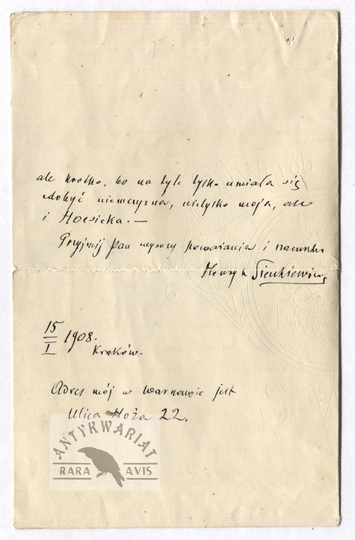 ale krótko, bo na tyle tylko umiała się
zdobyć niemczyzna, nietylko moja, ale
i Hoesicka. —
Przyjmij Pan wyrazy poważania i szacunku
Henryk Sienkiewicz
15/I 1908.
Kraków.
Adres mój w Warszawie jest
Ulica Hoża 22.
ANTYKWARIAT
RARA AVIS